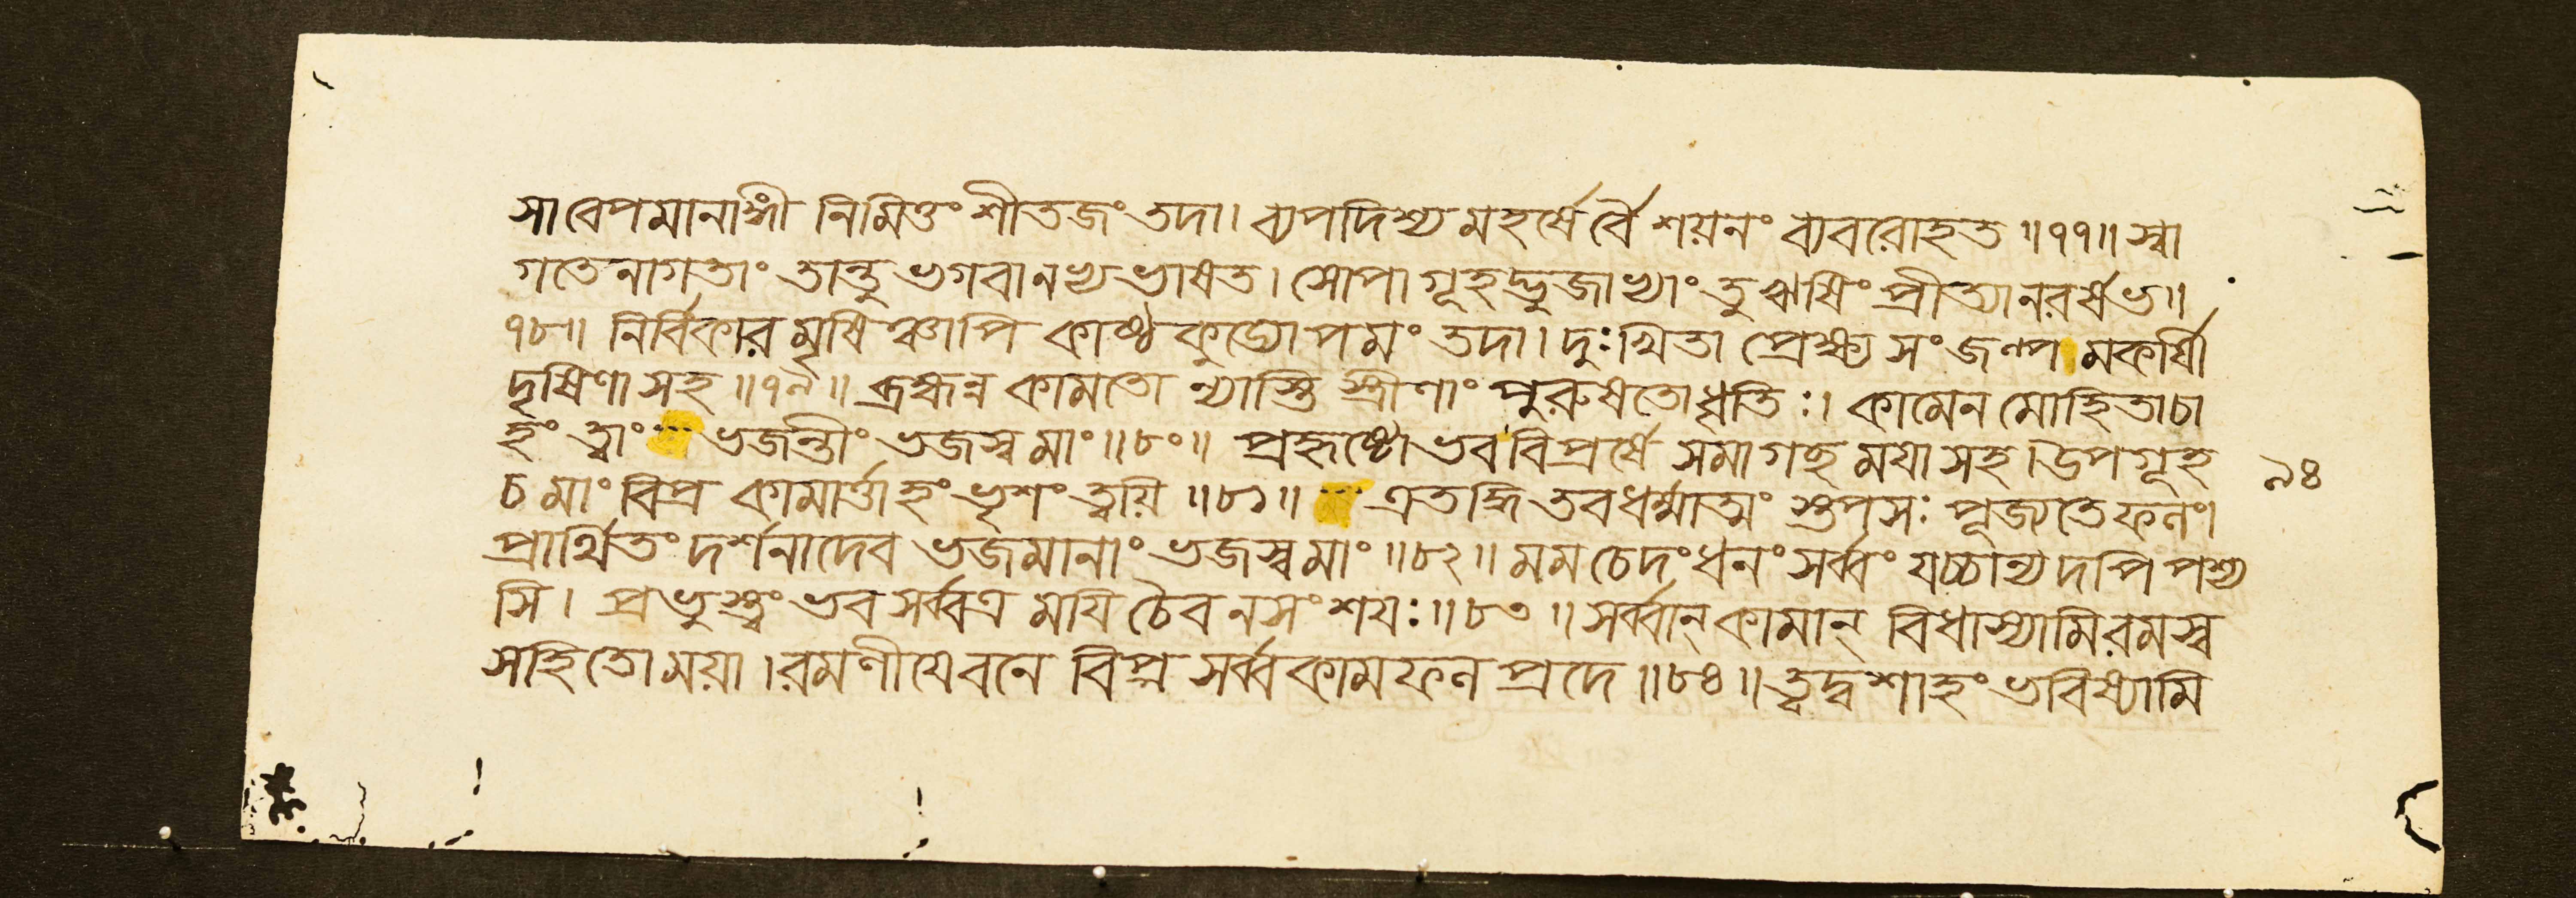 সাবেপমানাঙ্গী নিমিত্তং শীতজং তদা। ব্যপদিশ্য মহর্ষের্বৈ শয়নং ব্যবরোহত ॥৭৭॥ স্বা
গতেনাগতাং তান্তু ভগবানভ্যভাষত। সোপাগূহদ্ভুজাভ্যাং তু ঋষিং প্রীত্যানরর্ষভ॥
৭৮॥ নির্বিকারমৃষিঞ্চাপি কাষ্ঠকুড্যোপমং তদা। দুঃখিতা প্রেক্ষ্য সংজল্প মকর্ষী
দৃষিণা সহ ॥৭৯॥ ব্রহ্মন্ন কামতো ন্যাস্তি স্ত্রীণাং পুরুষতোধৃতিঃ। কামেন মোহিতাচা
হং ত্বাং ভজন্তীং ভজস্ব মাং ॥৮০॥ প্রহৃষ্টোভব বিপ্রর্ষে সমাগচ্ছ ময়া সহ। উপগূহ ৯৪
চ মাং বিপ্র কামার্ত্তাহং ভৃশং ত্বয়ি ॥৮১॥ এতদ্ধি তবধর্ম্মাত্মং স্তপসঃ পূজ্যতে ফলং।
প্রার্থিতং দর্শনাদেব ভজমানাং ভজস্ব মাং ॥৮২॥ মম চেদং ধনং সর্ব্বং যচ্চান্যদপি পশ্য
সি। প্রভুস্ত্বং ভব সর্ব্বত্র ময়ি চৈব নসংশয়ঃ ॥৮৩॥ সর্ব্বান্ কামান্ বিধাস্যামি রমস্ব
সহিতো ময়া। রমণীয়ে বনে বিপ্র সর্ব্বকামফল প্রদে ॥৮৪॥ ত্বদ্বশাহং ভবিষ্যামি